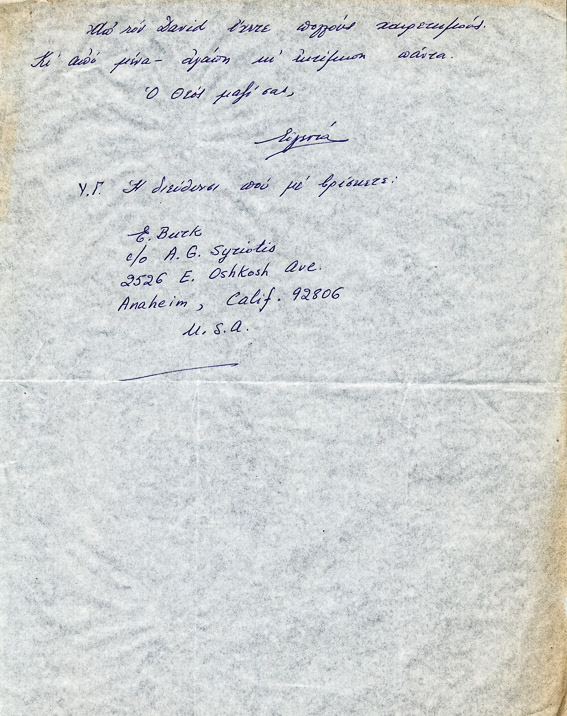 Από τον David έχετε πολλούς χαιρετισμούς.
Κι' από μένα - αγάπη κι' εκτίμηση πάντα.
Ὁ Θεός μαζί σας,
Υ.Γ. Ἡ διεύθυνσι πού μέ βρίσκετε:
E. Burk
c/o A. G. Syriotis
2526 E. Oshkosh Ave.
Anaheim, Calif. 92806
U.S.A.